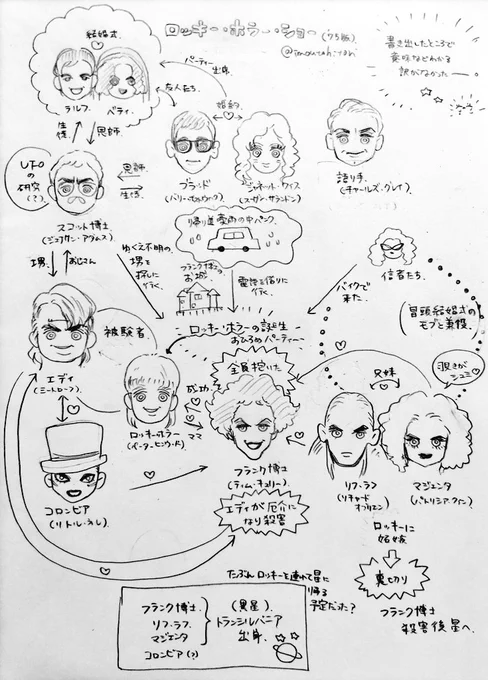 ロッキー・ホラー・ショー(75版)
書き出したところで
意味などわかる
訳がなかった
結婚式
ラルフ
ベティ
パーティー
出席
友人たち
婚約
生徒
恩師
UFO
の
研究
(?)
スコット博士
(ジョナサン・アダムス)
恩師
生徒
ブラッド
(バリー・ボストウィック)
ジャネット・ワイス
(スーザン・サランドン)
語り手
(チャールズ・グレイ)
帰り道豪雨の中パンク
フランク博士の
お城
電話を借りに
行く。
ゆくえ不明の
甥を
探しに
行く。
甥
おじさん
信者たち
バイクで
来た
冒頭結婚式の
モブと兼役
ロッキー・ホラーの誕生
おひろめパーティー
被験者
エディ
(ミートローフ)
ロッキー・ホラー
(ピーター・ヒンウッド)
成功
ママ
全員抱いた
フランク博士
(ティム・カリー)
エディが厄介に
なり殺害
兄妹
覗きが
シュミ♡
リフ・ラフ
(リチャード
オブライエン)
マジェンタ
(パトリシア・クイン)
コロンビア
(リトル・ネル)
ロッキーに
嫉妬
裏切り
フランク博士
殺害後星へ
たぶんロッキーを連れて星に
帰る
予定だった?
フランク博士
リフ・ラフ
マジェンタ
コロンビア(?)
(異星)
トランシルバニア
出身